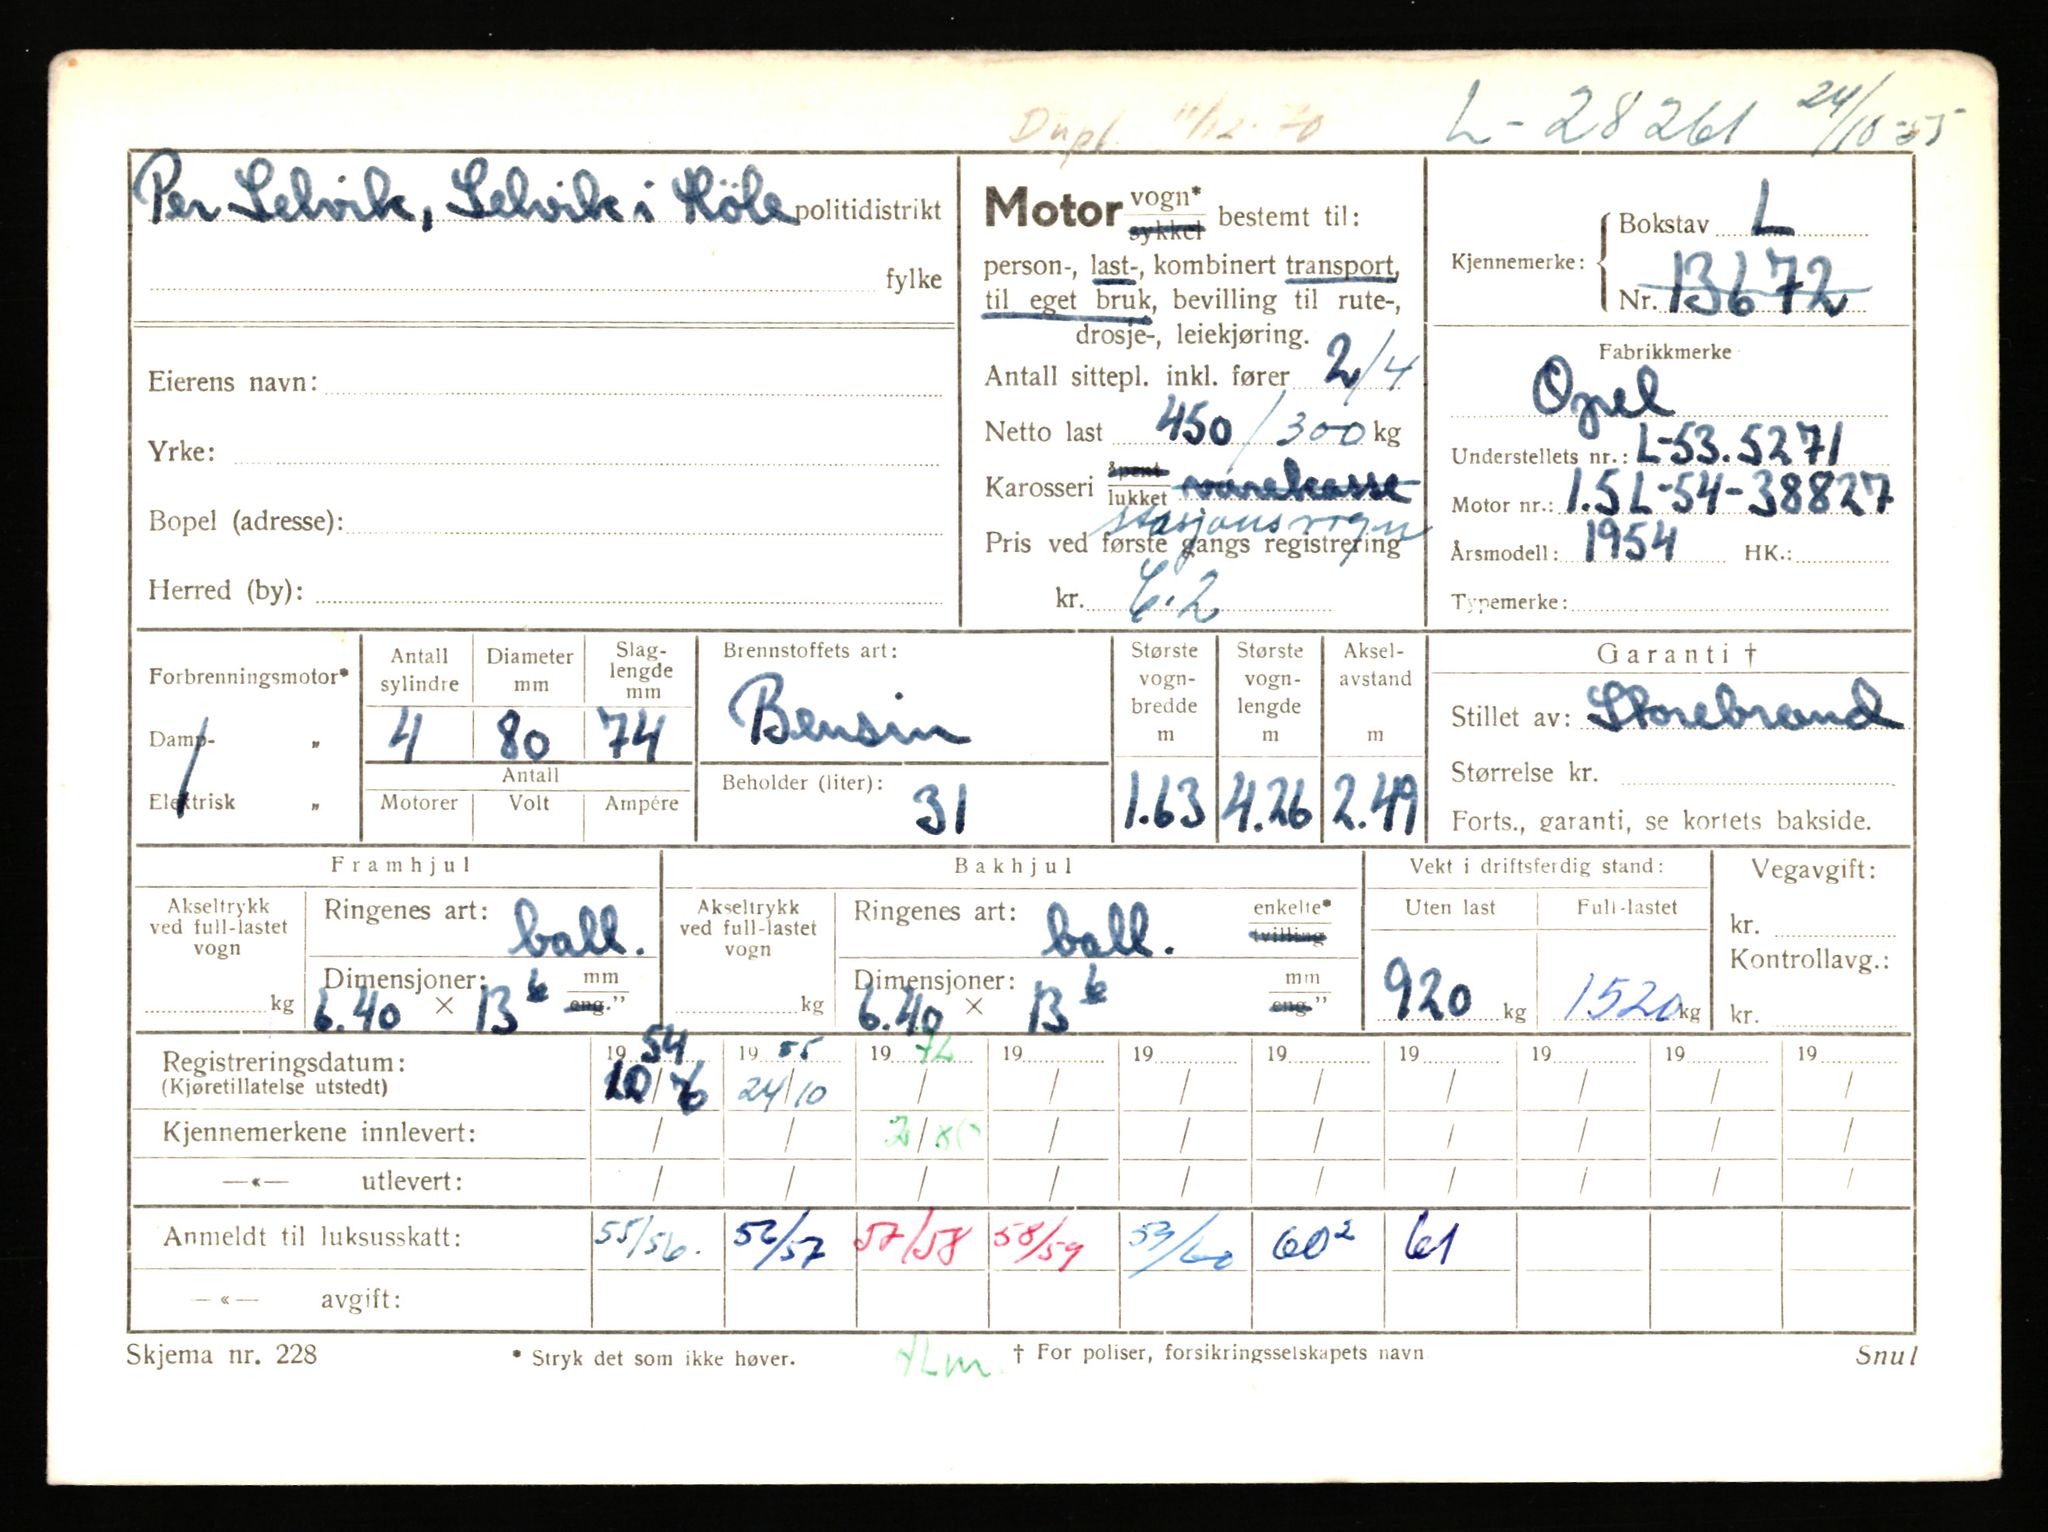 Dupl. 11/12-70
L-28261 24/10-55
Per Selvik, Selvik i Höle politidistrikt
fylke
Eierens navn:
Yrke:
Bopel (adresse):
Herred (by):
Motor vogn* sykkel bestemt til:
person-, last-, kombinert transport,
til eget bruk, bevilling til rute-,
drosje-, leiekjøring.
Antall sittepl. inkl. fører 2/4
Netto last 450/300 kg
Karosseri åpent lukket varekasse
stasjonsvogn
Pris ved første gangs registrering
kr. 6.2
Kjennemerke: Bokstav L
Nr. 13672
Fabrikkmerke
Opel
Understellets nr.: L-53.5271
Motor nr.: 1.5L-54-38827
Årsmodell: 1954 HK.:
Typemerke:
Forbrenningsmotor*
Damp- „
Elektrisk „
Antall sylindre Diameter mm Slag-lengde mm
4 80 74
Antall
Motorer Volt Ampére
Brennstoffets art:
Bensin
Beholder (liter):
31
Største vogn-bredde m Største vogn-lengde m Aksel-avstand m
1.63 4.26 2.49
Garanti †
Stillet av: Storebrand
Størrelse kr.
Forts., garanti, se kortets bakside.
Framhjul
Akseltrykk ved full-lastet vogn
kg
Ringenes art: ball.
Dimensjoner: mm eng."
6.40 × 13 6
Bakhjul
Akseltrykk ved full-lastet vogn
kg
Ringenes art: ball. enkelte* tvilling
Dimensjoner: mm eng."
6.40 × 13 6
Vekt i driftsferdig stand:
Uten last Full-lastet
920 kg 1520 kg
Vegavgift:
kr.
Kontrollavg.:
kr.
Registreringsdatum: 19 54 19 55 19 72 19 19 19 19 19 19 19
(Kjøretillatelse utstedt) / 24/10 / / / / / / / /
Kjennemerkene innlevert: / / / / / / / / / /
—«— utlevert: / / / / / / / / / /
Anmeldt til luksusskatt: 55/56. 56/57 57/58 58/59 59/60 60² 61
—«— avgift:
Skjema nr. 228 * Stryk det som ikke høver. † For poliser, forsikringsselskapets navn Snul